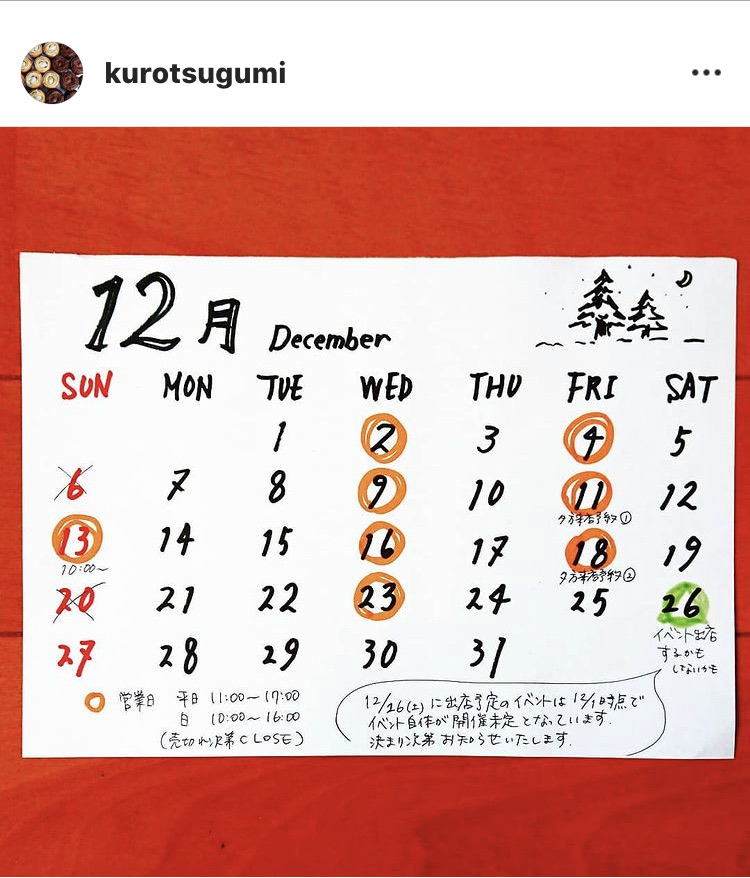 kurotsugumi
12月 December
SUN MON TUE WED THU FRI SAT
1 2 3 4 5
6 7 8 9 10 11 12
夕方来店予約①
13 14 15 16 17 18 19
10:00〜
夕方来店予約②
20 21 22 23 24 25 26
イベント出店
するかも
しないかも
27 28 29 30 31
営業日 平日 11:00〜17:00
日 10:00〜16:00
(売切れ次第CLOSE)
12/26(土)に出店予定のイベントは12/1時点で
イベント自体が開催未定となっています.
決まり次第お知らせいたします.